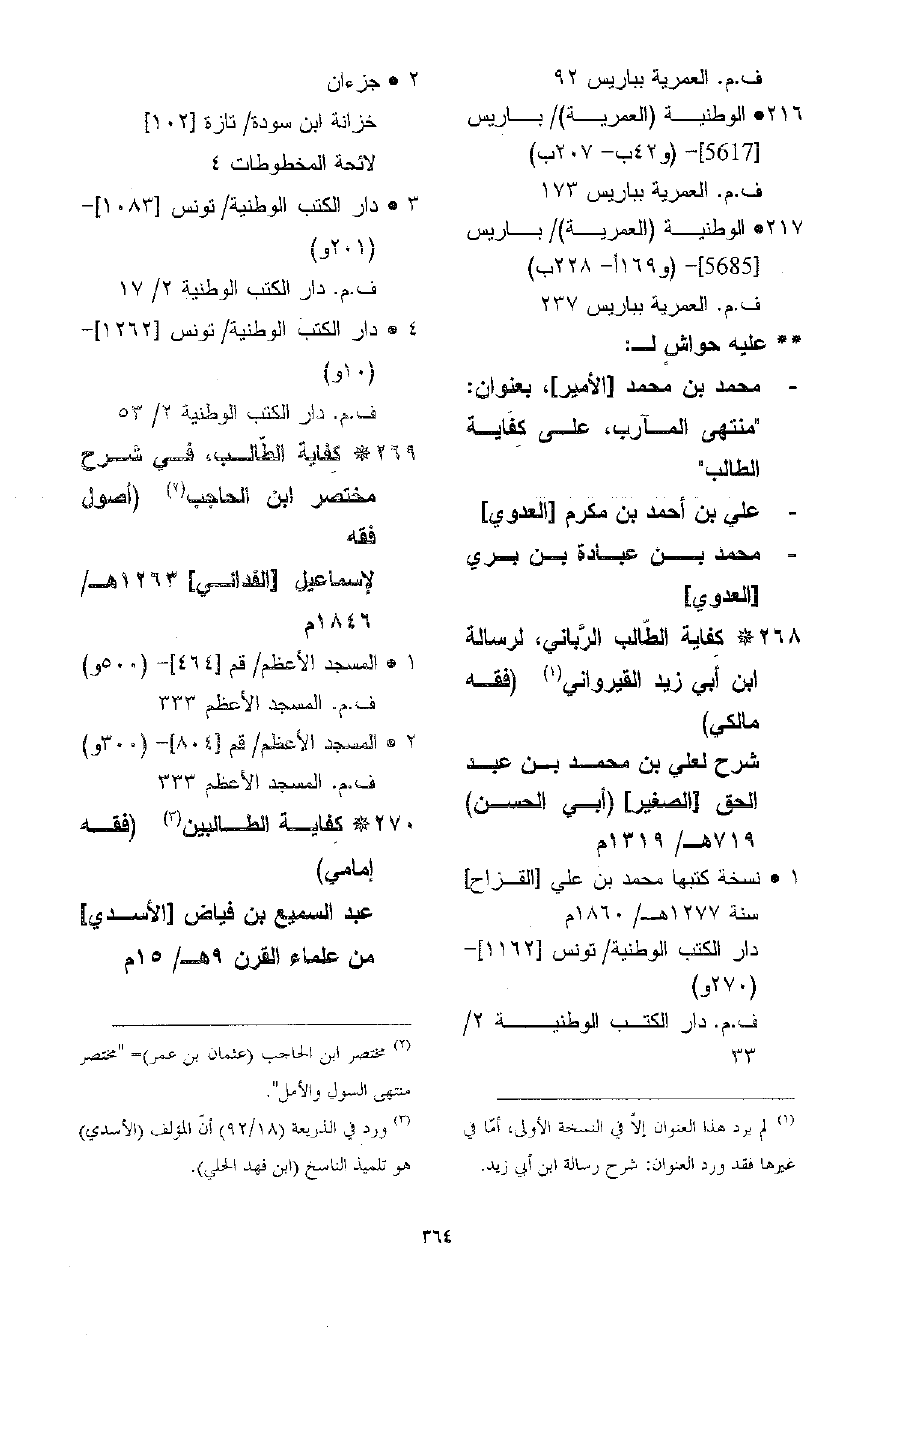 ف.م. العمرية بباريس ٩٢
٢١٦● الوطنيـــة (العمريـــة)/ بـــاريس
[5617]- (و٤٢ب- ٢٠٧ب)
ف.م. العمرية بباريس ١٧٣
٢١٧● الوطنيـــة (العمريـــة)/ بـــاريس
[5685]- (و١٦٩أ- ٢٢٨ب)
ف.م. العمرية بباريس ٢٣٧
** عليه حواشٍ لـــ:
- محمد بن محمد [الأمير]، بعنوان:
"منتهى المـآرب، علـى كفايـة
الطالب"
- علي بن أحمد بن مكرم [العدوي]
- محمد بـــن عبـادة بـن بـري
[العدوي]
٢٦٨* كفاية الطّالب الرَّباني، لرسالة
ابن أبي زيد القيرواني(١) (فقـه
مالكي)
شرح لعلي بن محمـد بـن عبـد
الحق [الصغير] (أبـي الحسـن)
٧١٩هـ/ ١٣١٩م
١ ● نسخة كتبها محمد بن علي [القـزاح]
سنة ١٢٧٧هـ/ ١٨٦٠م
دار الكتب الوطنية/ تونس [١١٦٢]-
(٢٧٠و)
ف.م. دار الكتـب الوطنيــــة ٢/
٣٣
(١) لم يرد هذا العنوان إلاّ في النسخة الأولى، أمّا في
غيرها فقد ورد العنوان: شرح رسالة ابن أبي زيد.
٢ ● جزءان
خزانة ابن سودة/ تازة [١٠٢]
لائحة المخطوطات ٤
٣ ● دار الكتب الوطنية/ تونس [١٠٨٣]-
(٢٠١و)
ف.م. دار الكتب الوطنية ٢/ ١٧
٤ ● دار الكتب الوطنية/ تونس [١٢٦٢]-
(١٠و)
ف.م. دار الكتب الوطنية ٢/ ٥٣
٢٦٩* كفاية الطّالـب، فـي شـرح
مختصر ابن الحاجب(٢) (أصول
فقه
لإسماعيل [الفدائـي] ١٢٦٣هـ/
١٨٤٦م
١ ● المسجد الأعظم/ قم [٤٦٤]- (٥٠٠و)
ف.م. المسجد الأعظم ٣٣٣
٢ ● المسجد الأعظم/ قم [٨٠٤]- (٣٠٠و)
ف.م. المسجد الأعظم ٣٣٣
٢٧٠* كفايـــة الطـــالبين(٣) (فقـــه
إمامي)
عبد السميع بن فياض [الأسـدي]
من علماء القرن ٩هـ/ ١٥م
(٢) مختصر ابن الحاجب (عثمان بن عمر)= "مختصر
منتهى السول والأمل".
(٣) ورد في الذريعة (٩٢/١٨) أنّ المؤلف (الأسدي)
هو تلميذ الناسخ (ابن فهد الحلي).
٣٦٤